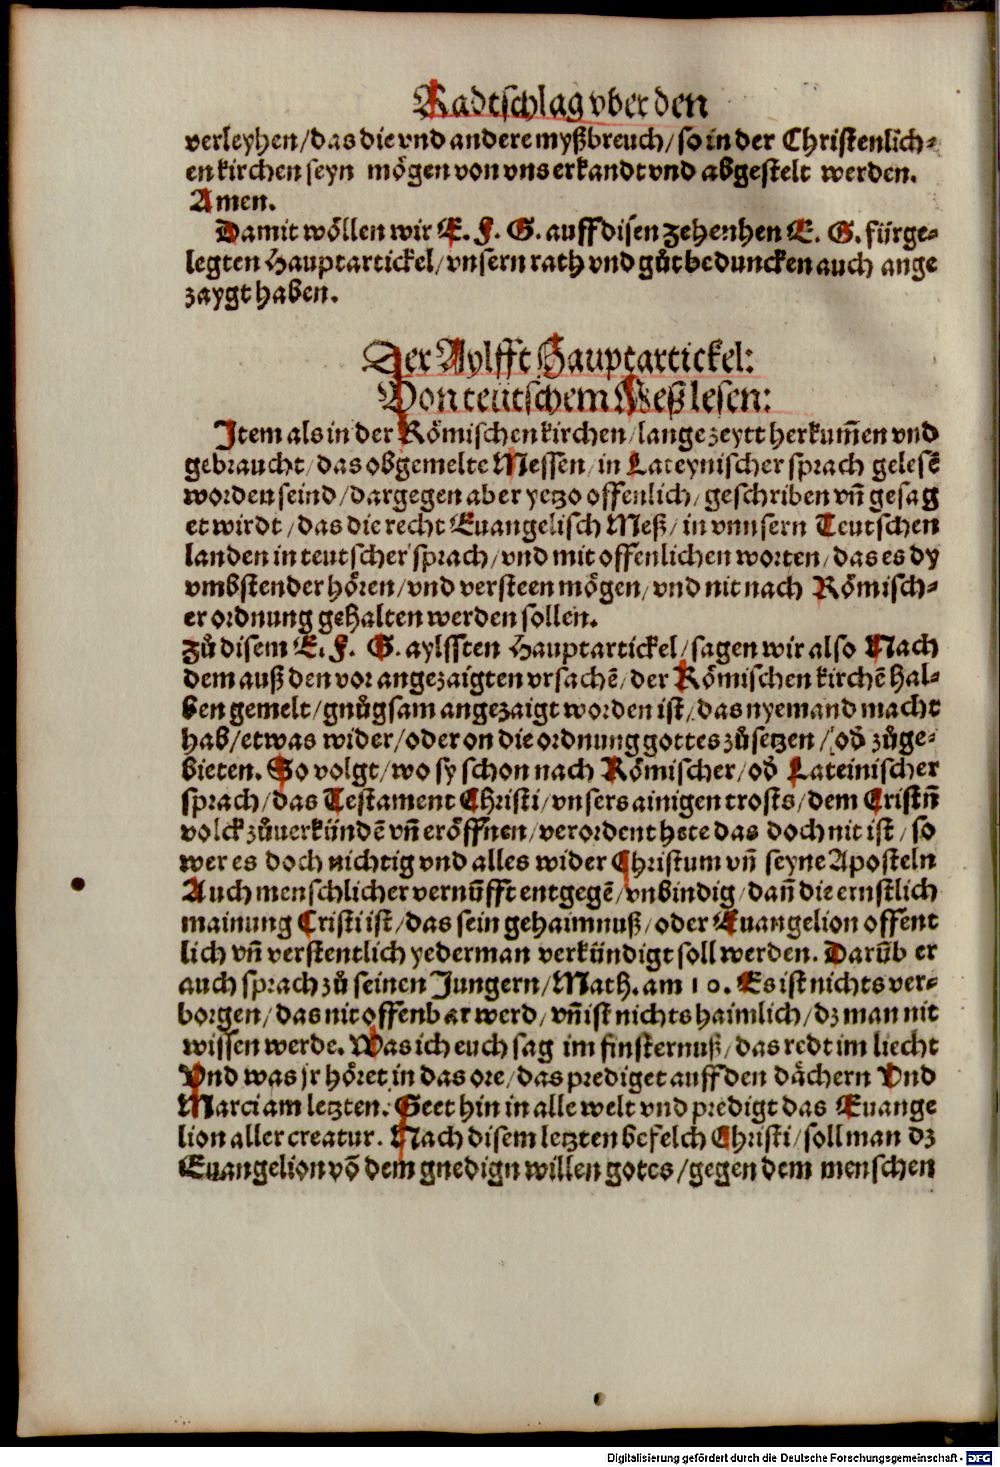 Radtschlag vber den
verleyhen/das die vnd andere myßbreuch/so in der Christenlich-
en kirchen seyn mögen von vns erkandt vnd abgestelt werden.
Amen.
Damit wöllen wir E. F. G. auff disen zehenhen E. G. fürge-
legten Hauptartickel/vnsern rath vnd gůtbeduncken auch ange
zaygt haben.
Der Aylfft Hauptartickel:
Von teütschem Meß lesen:
Item als in der Römischen kirchen/lange zeytt herkum̃en vnd
gebraucht/das obgemelte Messen/in Lateynischer sprach gelesẽ
worden seind/dargegen aber yetzo offenlich/geschriben vñ gesag
et wirdt/das die recht Euangelisch Meß/in vnnsern Teutschen
landen in teutscher sprach/vnd mit offenlichen worten/das es dy
vmbstender hören/vnd versteen mögen/vnd nit nach Römisch-
er ordnung gehalten werden sollen.
Zů disem E. F. G. aylssten Hauptartickel/sagen wir also Nach
dem auß den vor angezaigten vrsachẽ/der Römischen kirchẽ hal-
ben gemelt/gnůgsam angezaigt worden ist/das nyemand macht
hab/etwas wider/oder on die ordnung gottes zů setzen/od̃ zůge-
bieten. So volgt/wo sy schon nach Römischer/od̃ Lateinischer
sprach/das Testament Christi/vnsers ainigen trosts/dem Cristñ
volck zůuerkündẽ vñ eröffnen/verordent hete das doch nit ist/so
wer es doch nichtig vnd alles wider Christum vñ seyne Aposteln
Auch menschlicher vernũfft entgegẽ/vnbindig/dañ die ernstlich
mainung Cristi ist/das sein gehaimnuß/oder Euangelion offent
lich vñ verstentlich yederman verkündigt soll werden. Darũb er
auch sprach zů seinen Jungern/Math. am 10. Es ist nichts ver-
borgen/das nit offenbar werd/vñ ist nichts haimlich/dz man nit
wissen werde. Was ich euch sag im finsternuß/das redt im liecht
Vnd was jr höret in das ore/das prediget auff den dächern Vnd
Marci am letzten. Geet hin in alle welt vnd predigt das Euange
lion aller creatur. Nach disem letzten befelch Christi/soll man dz
Euangelion võ dem gnedign willen gotes/gegen dem menschen
Digitalisierung gefördert durch die Deutsche Forschungsgemeinschaft - DFG